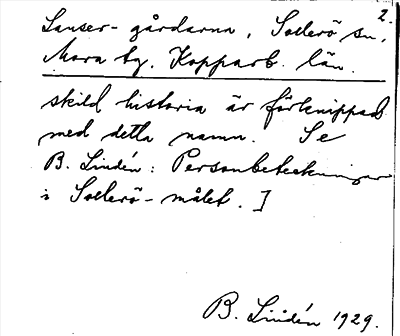 2.
Lanser-gårdarna, Sollerö sn,
Mora tg. Kopparb. län.
skild historia är förknippad
med detta namn. Se
B. Lindén: Personbeteckningar
i Sollerö-målet.]
B. Lindén 1929.